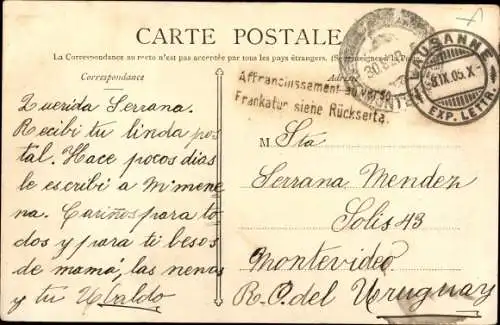 CARTE POSTALE
La Correspondance au recto n'est pas acceptée par tous les pays étrangers. (Se renseigner à la Poste)
Correspondance
Adresse
Affranchissement au verso.
Frankatur siehe Rückseite.
LAUSANNE
8.IX.05.X
EXP. LETTR.
Querida Serrana.
Recibi tu linda pos
tal. Hace pocos dias
le escribi a M'mene
na. Cariños para to
dos y para ti besos
de mamá, las nenas
y tu Ubaldo
M Sta
Serrana Mendez
Solis 43
Montevideo
R. O. del Uruguay